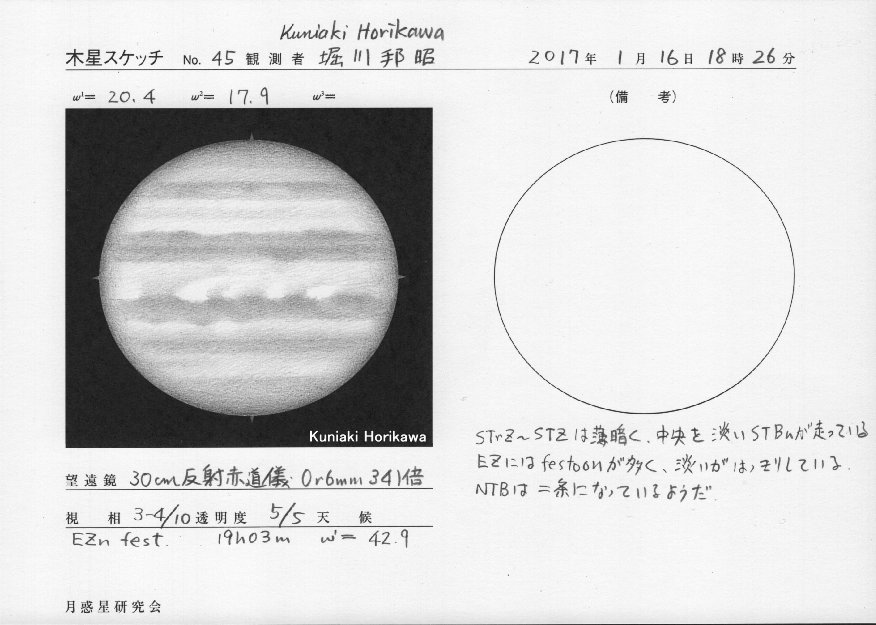 Kuniaki Horikawa
木星スケッチ No. 45 観測者 堀川邦昭 2017年 1月 16日 18時 26分
ω¹= 20.4 ω²= 17.9 ω³=
(備 考)
Kuniaki Horikawa
STrZ〜STZは薄暗く、中央を淡いSTBnが走っている
EZにはfestoonが多く、淡いがはっきりしている.
NTBは二条になっているようだ.
望遠鏡 30cm反射赤道儀 Or6mm 341倍
視 相 3-4/10 透明度 5/5 天 候
EZn fest. 19h03m ω¹= 42.9
月惑星研究会